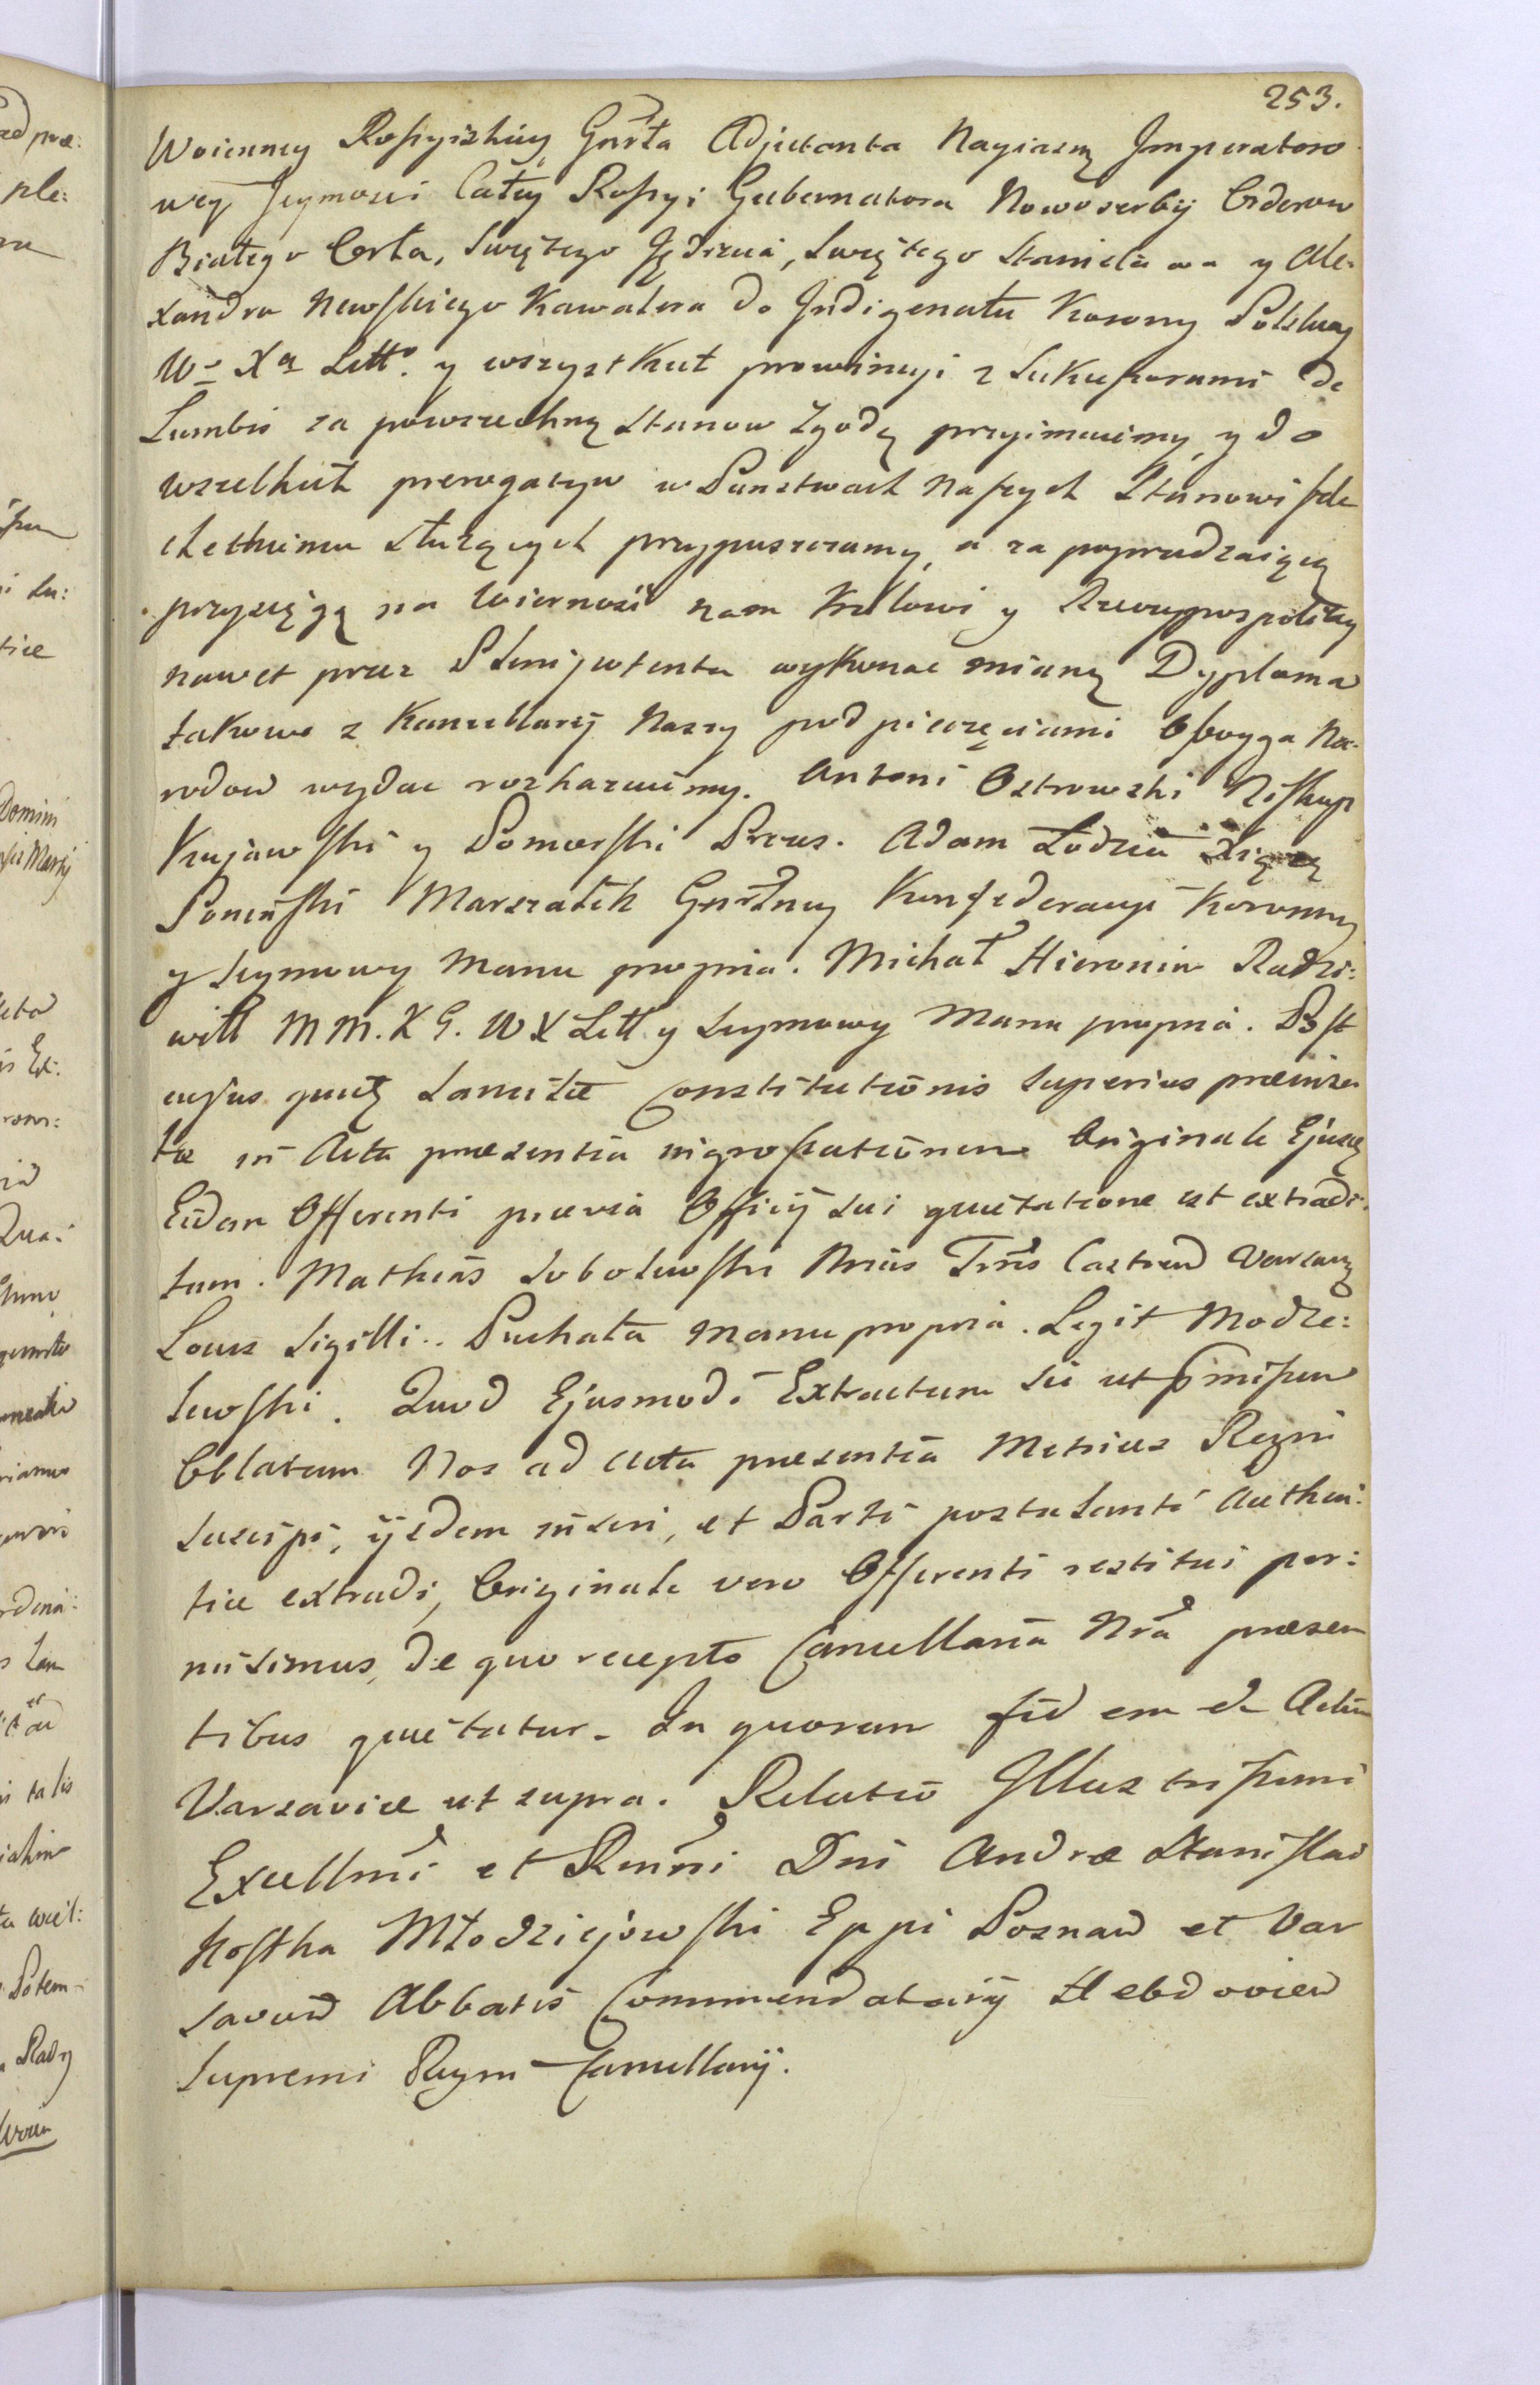 253.
Woienney Rossyiskiey Gnrła Adjutanta Nayiasn Imperatoro
wey Jeymosci Całey Rossyi Gubernatora Nowoserbij Orderow
Białego Orła, Swiętego Jędrzeia, Swiętego Stanisława y Ale:
xandra Newskiego Kawalera do Indigenatu Korony Polskiey
Wo Xa Litto. y wszystkich prowincyi z Sukcessorami de
Lumbis za powszechną Stanow zgodą przyimuiemy y do
wszelkich prerogatyw w Panstwach naszych Stanowi szla
checkiemu służących przypuszczamy, a za poprzedzaiącą
przysięgą na Wiernosć nam Krolowi y Rzeczypospolitey
nawet przez Plenipotenta wykonać mianą Dyploma
takowe z Kancellaryi Naszey pod pieczęciami Oboyga Na:
rodow wydac rozkazuiemy. Antoni Ostrowski Biskup
Kujawski y Pomorski Prezes. Adam Łodzia Xiąże
Poninski Marszałek Gnrlney Konfederacyi Koronney
y Seymowy Manu propria. Michał Hieronim Radzi:
will M M. K G. W X Litt y Seymowy Manu propria. Post
cujus quidem Sancitae Constitutionis superius praeinser
tae in Acta praesentia ingrossationem Originale Ejusdem
Eidem Offerenti praevia Officij sui quietatione est extradi:
tum. Mathias Sobolewski Nrius Trris Castren Varsavien
Locus Sigilli.. Puchała manu propria. Legit Modze:
lewski. Quod Ejusmodi Extractum sic ut pmissum
Oblatum Nos ad Acta praesentia Metrices Regni
suscipi, ijsdem inseri, et Parti postulanti Authen:
tice extradi, Originale vero Offerenti restitui per:
misimus, de quo recepto Cancellaria Nra praesen
tibus quietatur. In quorum fidem et Actum
Varsaviae ut supra. Relatio Illustrissimi
Excellmi et Rmi Dni Andrae Stanislai
Kostka Młodziejowski Eppi Posnan et Var
savien Abbatis Commendatarij Hebdovien
Supremi Regni Cancellarij.